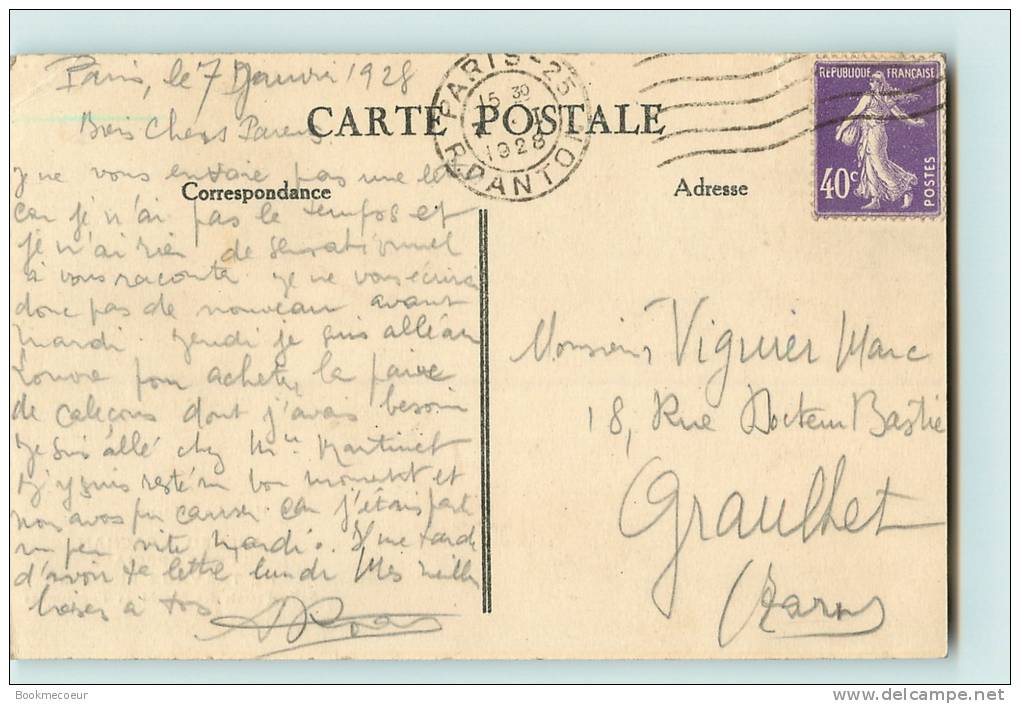 Paris, le 7 Janvier 1928
Bien Chers Parents
CARTE POSTALE
PARIS-25
15 30
7 -1
1928
R. DANTON
REPUBLIQUE FRANÇAISE
40c
POSTES
Correspondance
Adresse
Je ne vous envoie pas une
car je n'ai pas le temps et
je n'ai rien de sensationnel
à vous raconter je ne vous écrirai
donc pas de nouveau avant
Mardi. Jeudi je suis allé au
Louvre pour acheter la paire
de caleçons dont j'avais besoin
Je suis allé chez Martinet
J'y suis resté un bon moment et
nous avons pu causer car j'étais parti
un peu vite Mardi. Il me tarde
d'avoir ta lettre lundi Mes meilleurs
baisers à tous
Monsieur Viguier Marc
18, Rue Docteur Bastié
Graulhet
(Tarn)
Bookmecoeur
www.delcampe.net